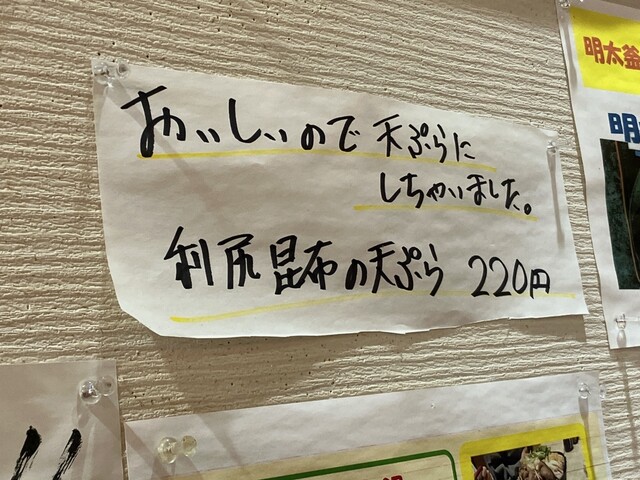 おいしいので天ぷらに
しちゃいました。
利尻昆布の天ぷら 220円
明太釜
明